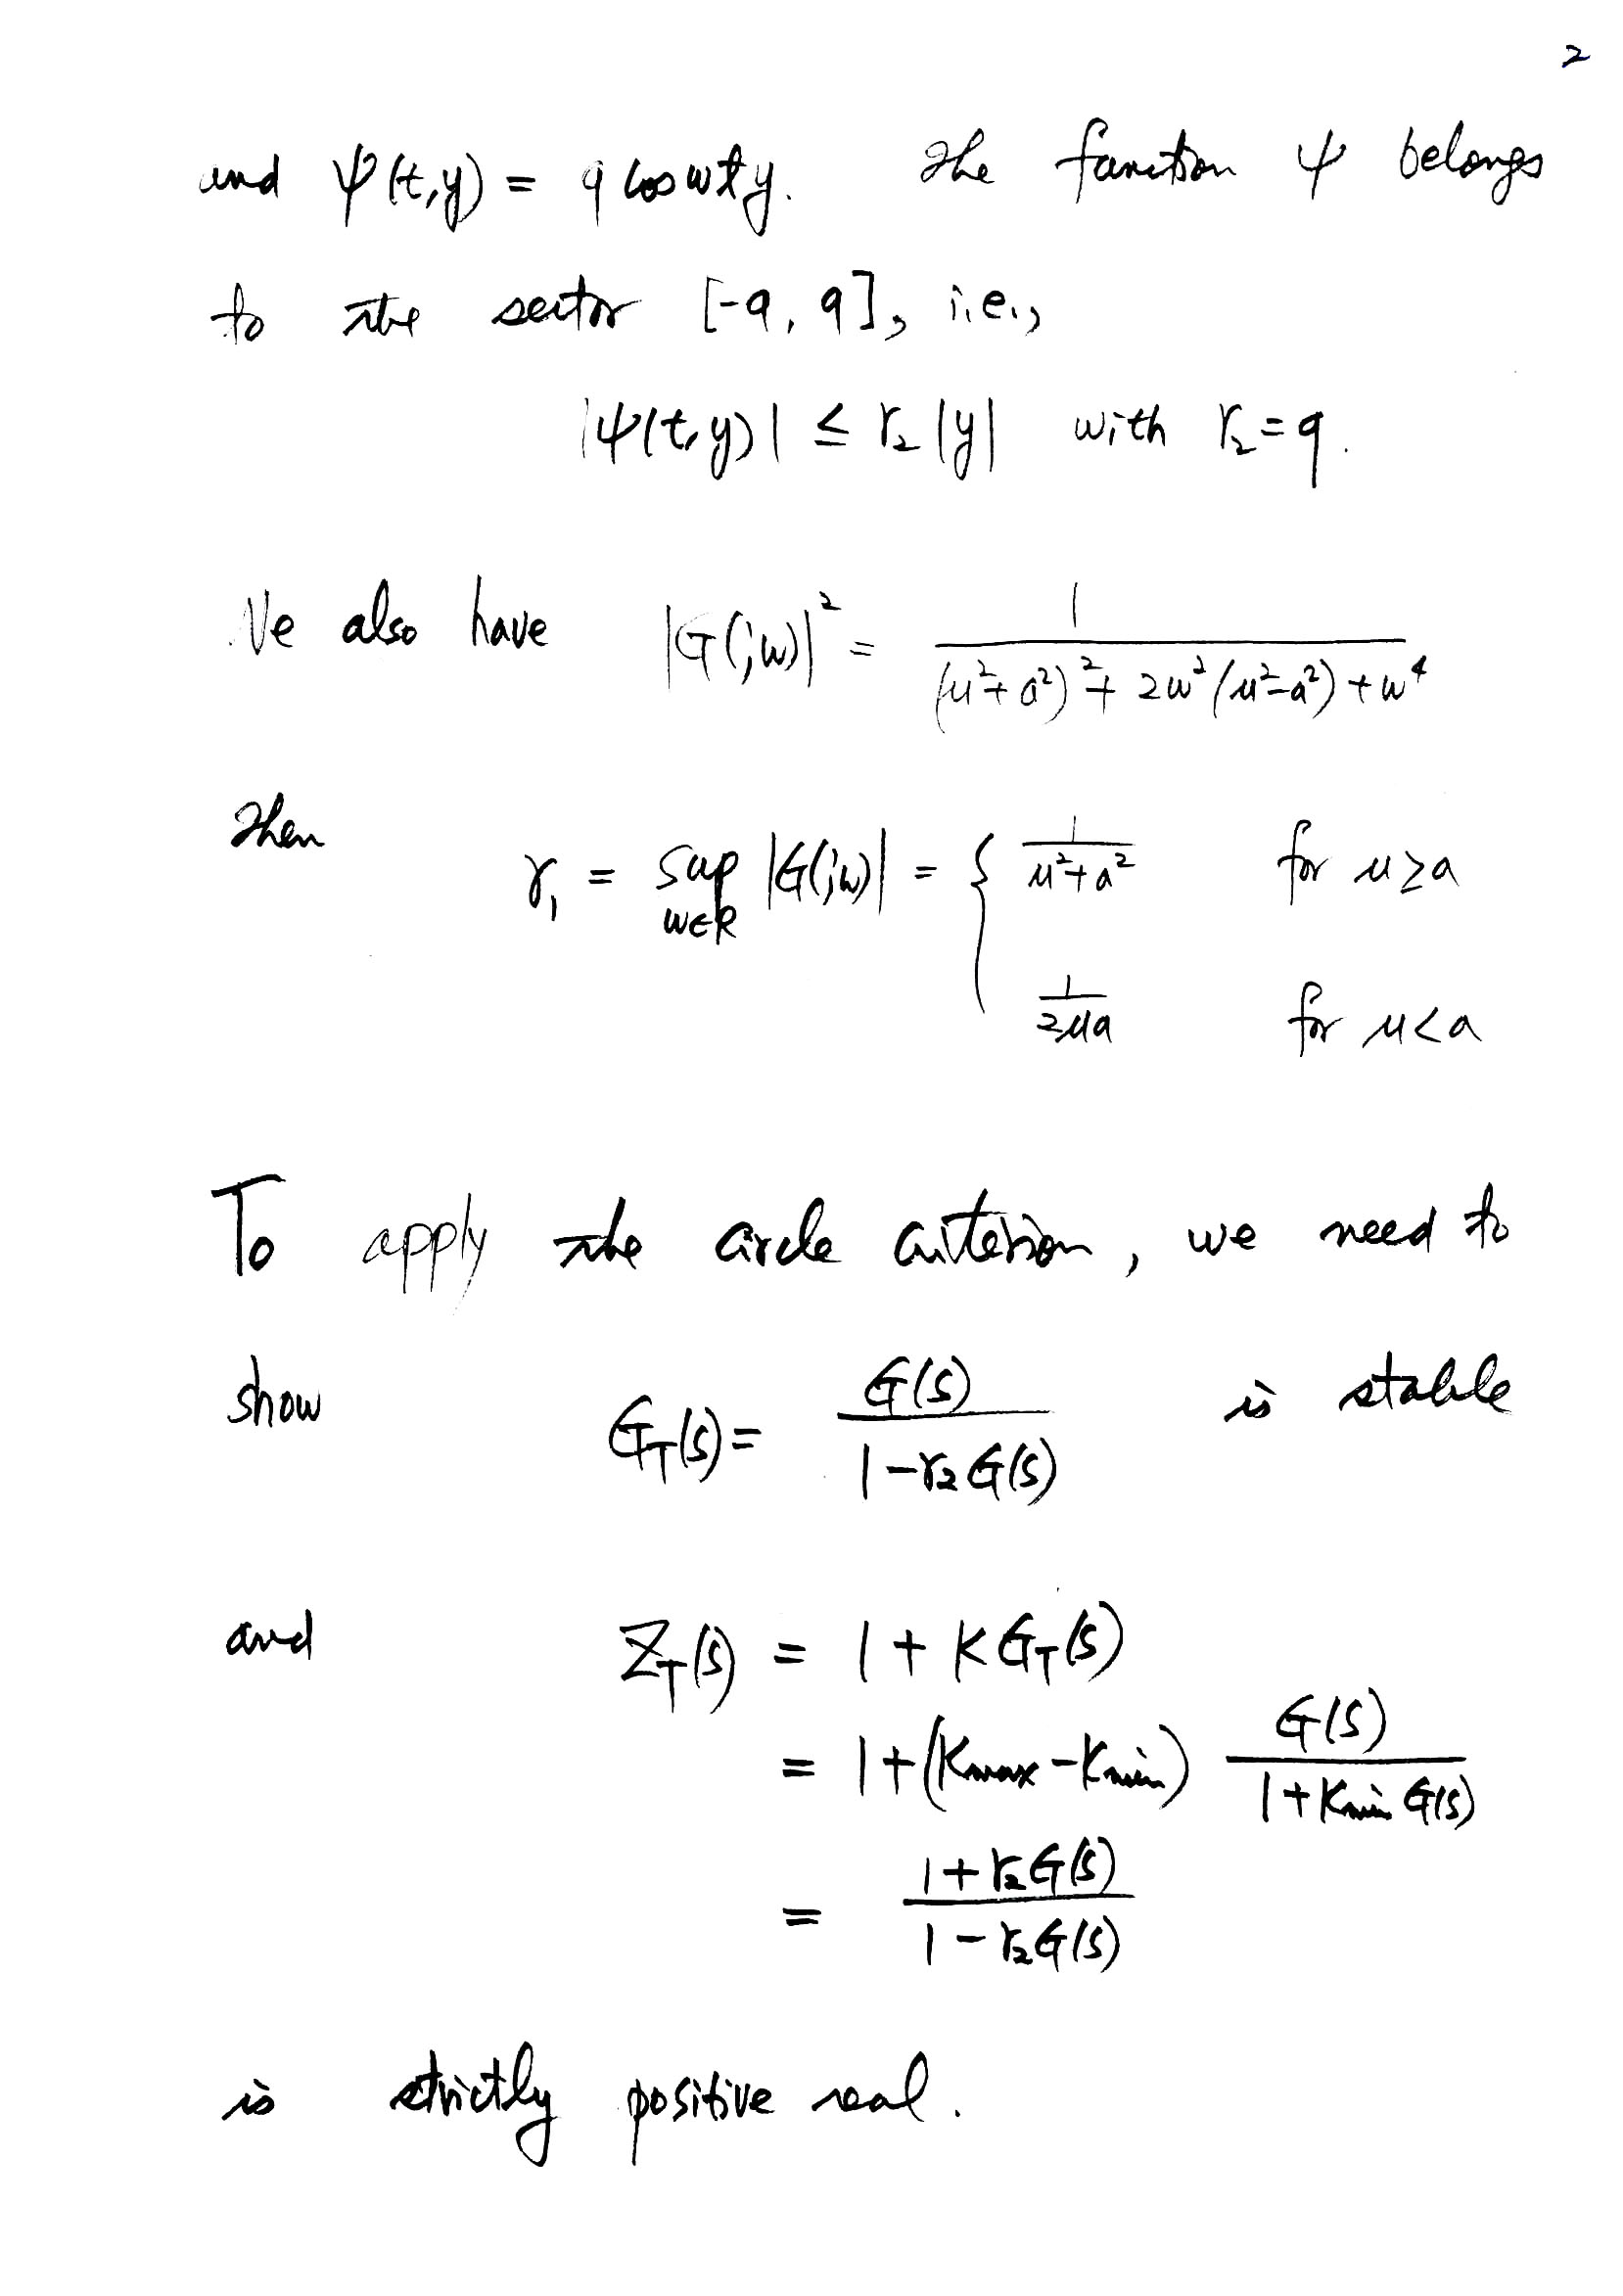 2
and ψ(t,y) = q cos ωt y. The function ψ belongs
to the sector [-q, q], i.e.,
|ψ(t,y)| ≤ γ₂ |y| with γ₂ = q.
We also have |G(jω)|² = 1 / ((μ²+a²)² + 2ω²(μ²-a²) + ω⁴)
Then
γ₁ = sup_{ω∈R} |G(jω)| = { 1/(μ²+a²) for μ ≥ a
1/(2μa) for μ < a
To apply the circle criterion, we need to
show G_T(s) = G(s) / (1-γ₂G(s)) is stable
and Z_T(s) = 1 + K G_T(s)
= 1 + (Kmax - Kmin) G(s) / (1 + Kmin G(s))
= (1+γ₂G(s)) / (1-γ₂G(s))
is strictly positive real.